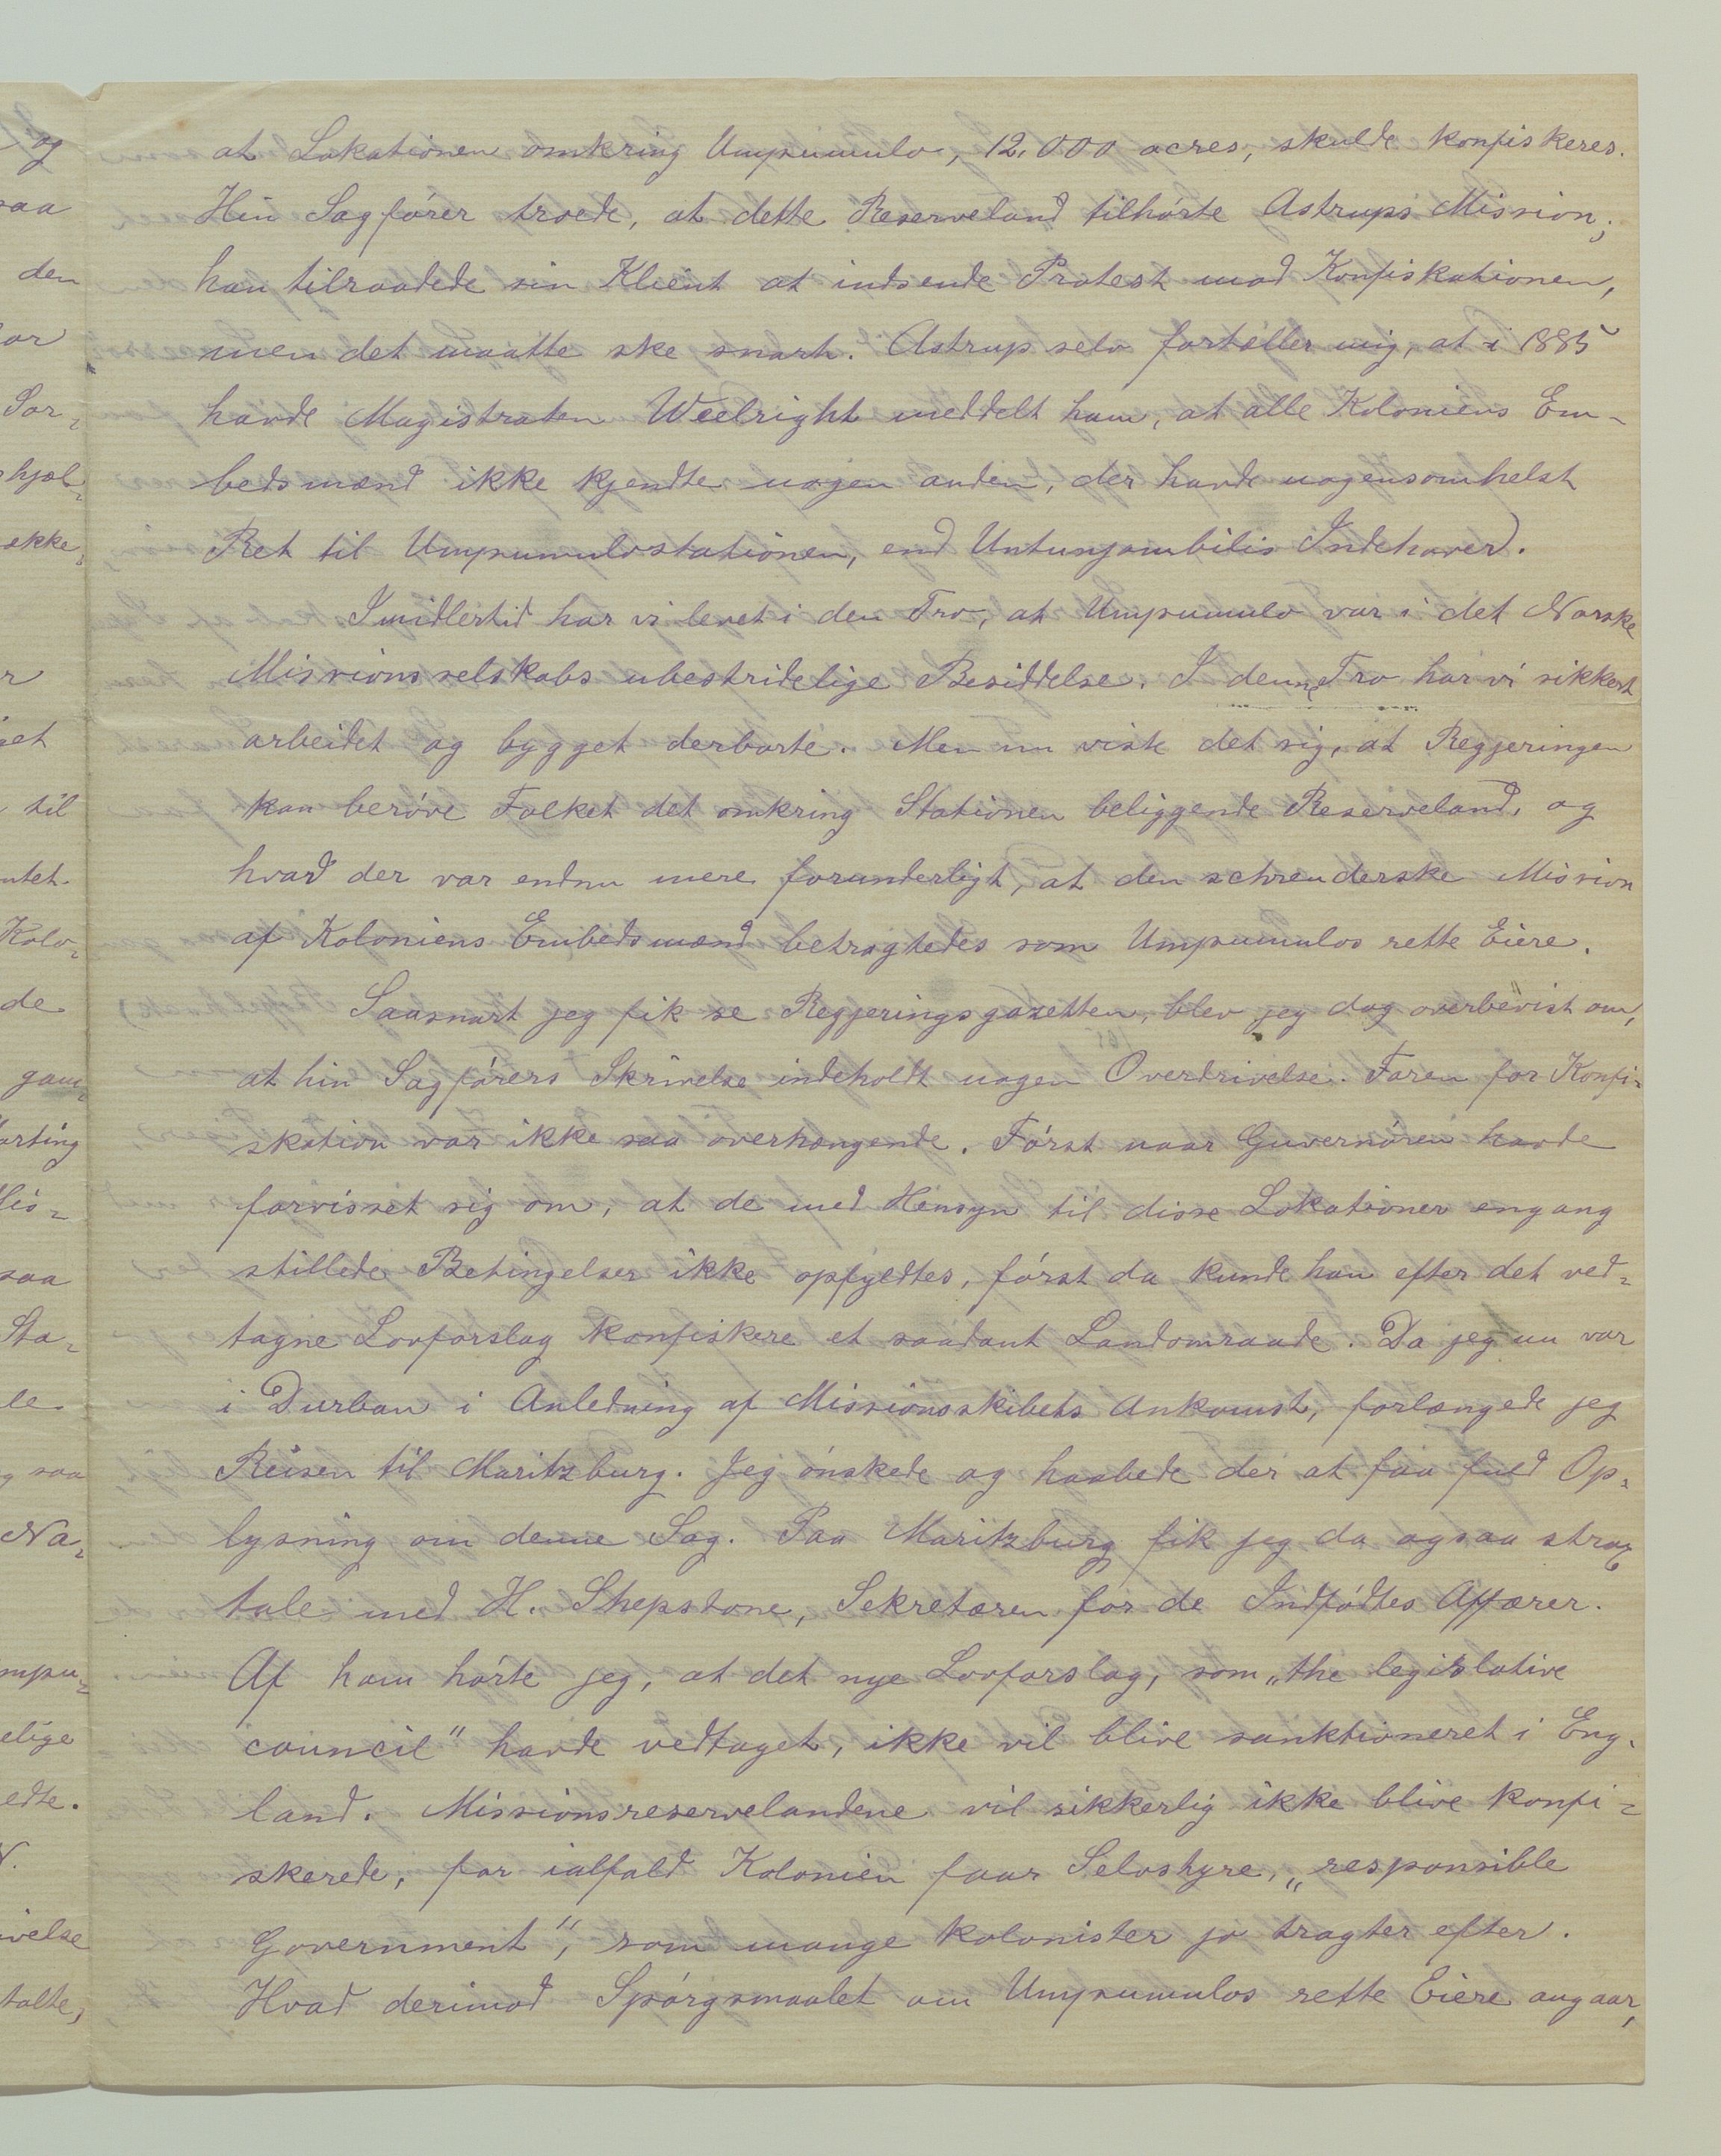 at Lokationen omkring Umpumulo, 12.000 acres, skulde konfiskeres.
Hin Sagfører troede, at dette Reserveland tilhørte Astrups Mission;
han tilraadede sin Klient at indsende Protest mod Konfiskationen,
men det maatte ske snart. Astrup selv fortæller mig, at i 1885
havde Magistraten Weelright meddelt ham, at alle Koloniens Em-
bedsmænd ikke kjendte nogen anden, der havde nogensomhelst
Ret til Umpumulostationen, end Untunjambilis Indehaver.
Imidlertid har vi levet i den Tro, at Umpumulo var i det Norske
Missionsselskabs ubestridelige Besiddelse. I denne Tro har vi sikkert
arbeidet og bygget derborte. Men nu viste det sig, at Regjeringen
kan berøve Folket det omkring Stationen beliggende Reserveland, og
hvad der var endnu mere forunderligt, at den schreuderske Mission
af Koloniens Embedsmænd betragtedes som Umpumulos rette Eiere.
Saasnart jeg fik se Regjeringsgazetten, blev jeg dog overbevist om,
at hin Sagførers Skrivelse indeholdt nogen Overdrivelse. Faren for Konfi-
skation var ikke saa overhængende. Først naar Guvernøren havde
forvisset sig om, at de med Hensyn til disse Lokationer engang
stillede Betingelser ikke opfyldtes, først da kunde han efter det ved-
tagne Lovforslag konfiskere et saadant Landomraade. Da jeg nu var
i Durban i Anledning af Missionsskibets Ankomst, forlængede jeg
Reisen til Maritzburg. Jeg ønskede og haabede der at faa fuld Op-
lysning om denne Sag. Paa Maritzburg fik jeg da ogsaa strax
tale med H. Shepstone, Sekretæren for de Indfødtes Affærer.
Af ham hørte jeg, at det nye Lovforslag, som „the legislative
council" havde vedtaget, ikke vil blive sanktioneret i Eng-
land. Missionsreservelandene vil sikkerlig ikke blive konfi-
skerede, før ialfald Kolonien faar Selvstyre, „responsible
Government", som mange Kolonister jo tragter efter.
Hvad derimod Spørgsmaalet om Umpumulos rette Eiere angaar,